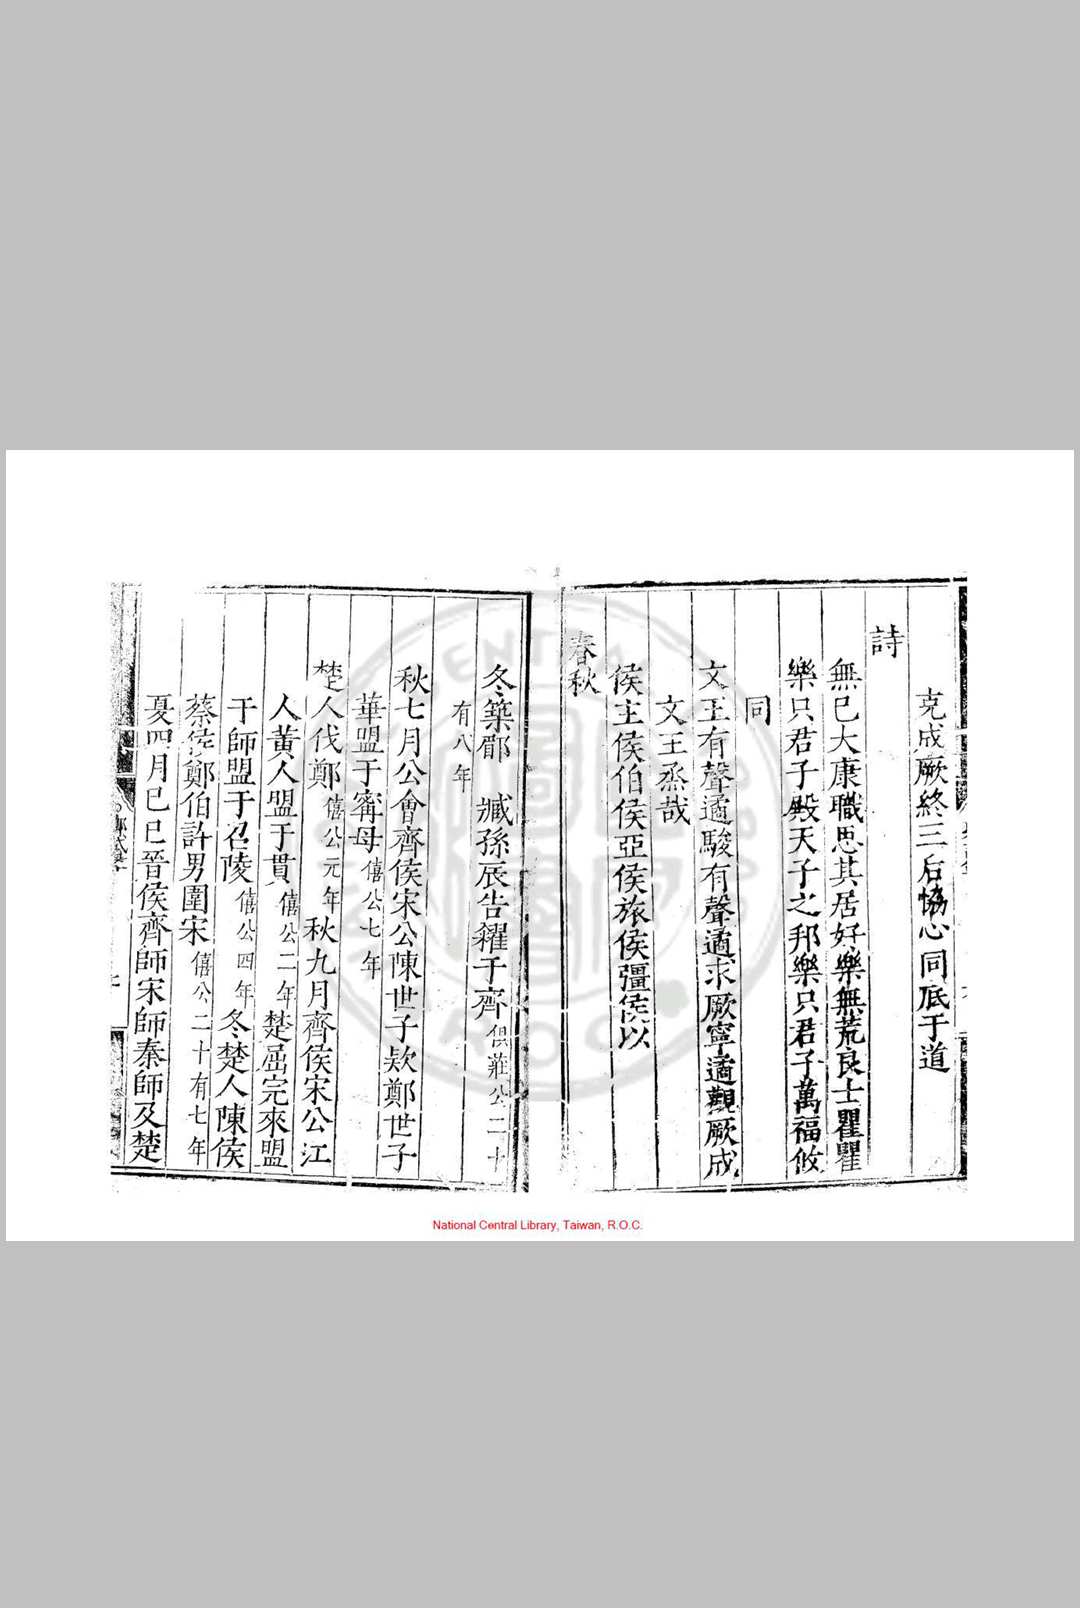 克成厥終三后恊心同底于道
詩
無已大康職思其居好樂無荒良士瞿瞿
樂只君子殿天子之邦樂只君子萬福攸
同
文王有聲遹駿有聲遹求厥寧遹觀厥成
文王烝哉
侯主侯伯侯亞侯旅侯彊侯以
春秋
冬築郿 臧孫辰告糴于齊俱莊公二十
有八年
秋七月公會齊侯宋公陳世子欵鄭世子
華盟于甯母僖公七年
楚人伐鄭僖公元年 秋九月齊侯宋公江
人黃人盟于貫僖公二年 楚屈完來盟
于師盟于召陵僖公四年 冬楚人陳侯
蔡侯鄭伯許男圍宋僖公二十有七年
夏四月己巳晉侯齊師宋師秦師及楚
National Central Library, Taiwan, R.O.C.